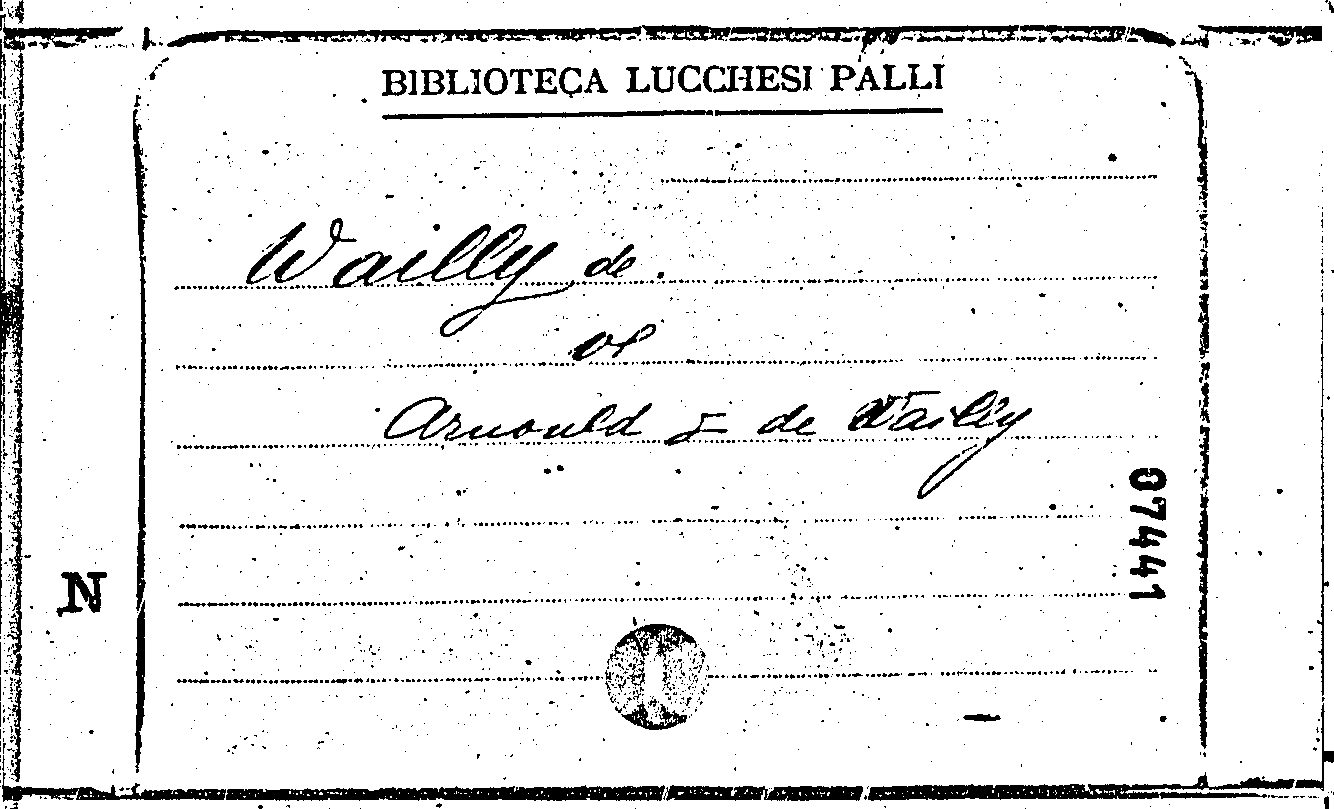 BIBLIOTECA LUCCHESI PALLI
Wailly de.
Arnould & de Wailly
07441
N